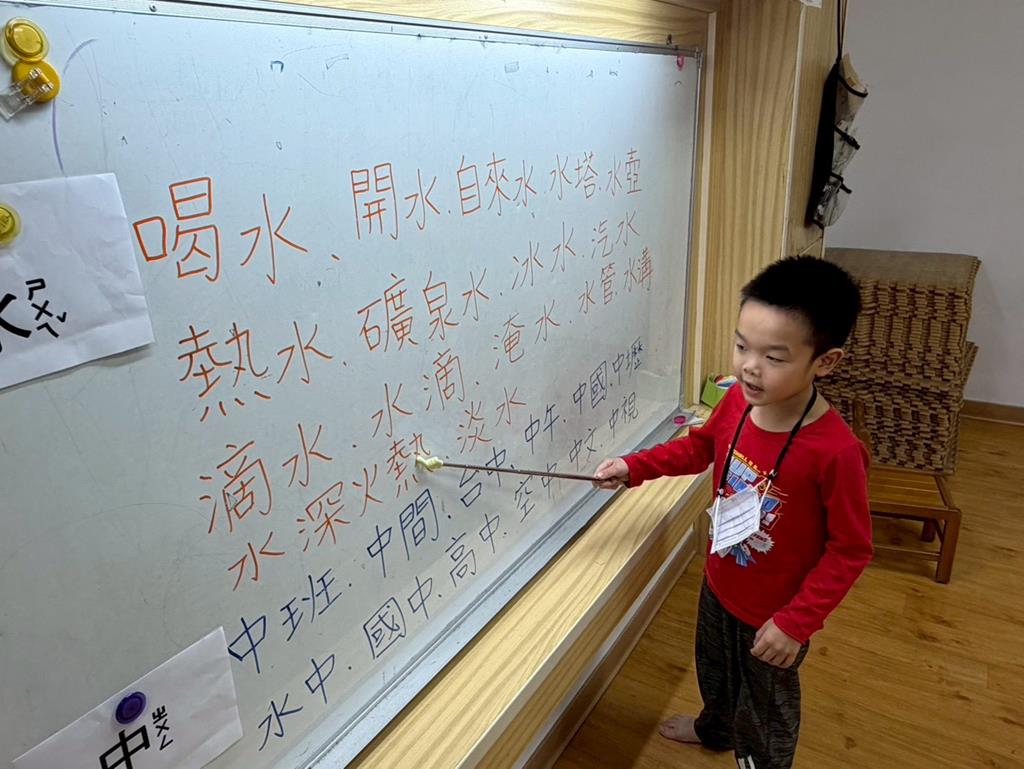 喝水、開水、自來水、水塔、水壺
熱水、礦泉水、冰水、汽水
滴水、水滴、淹水、水管、水溝
水深火熱、淡水
中班、中間、台中、中午、中國、中壢
水中、國中、高中、空中、中文、中視
水 ㄕㄨㄟˇ
中 ㄓㄨㄥ